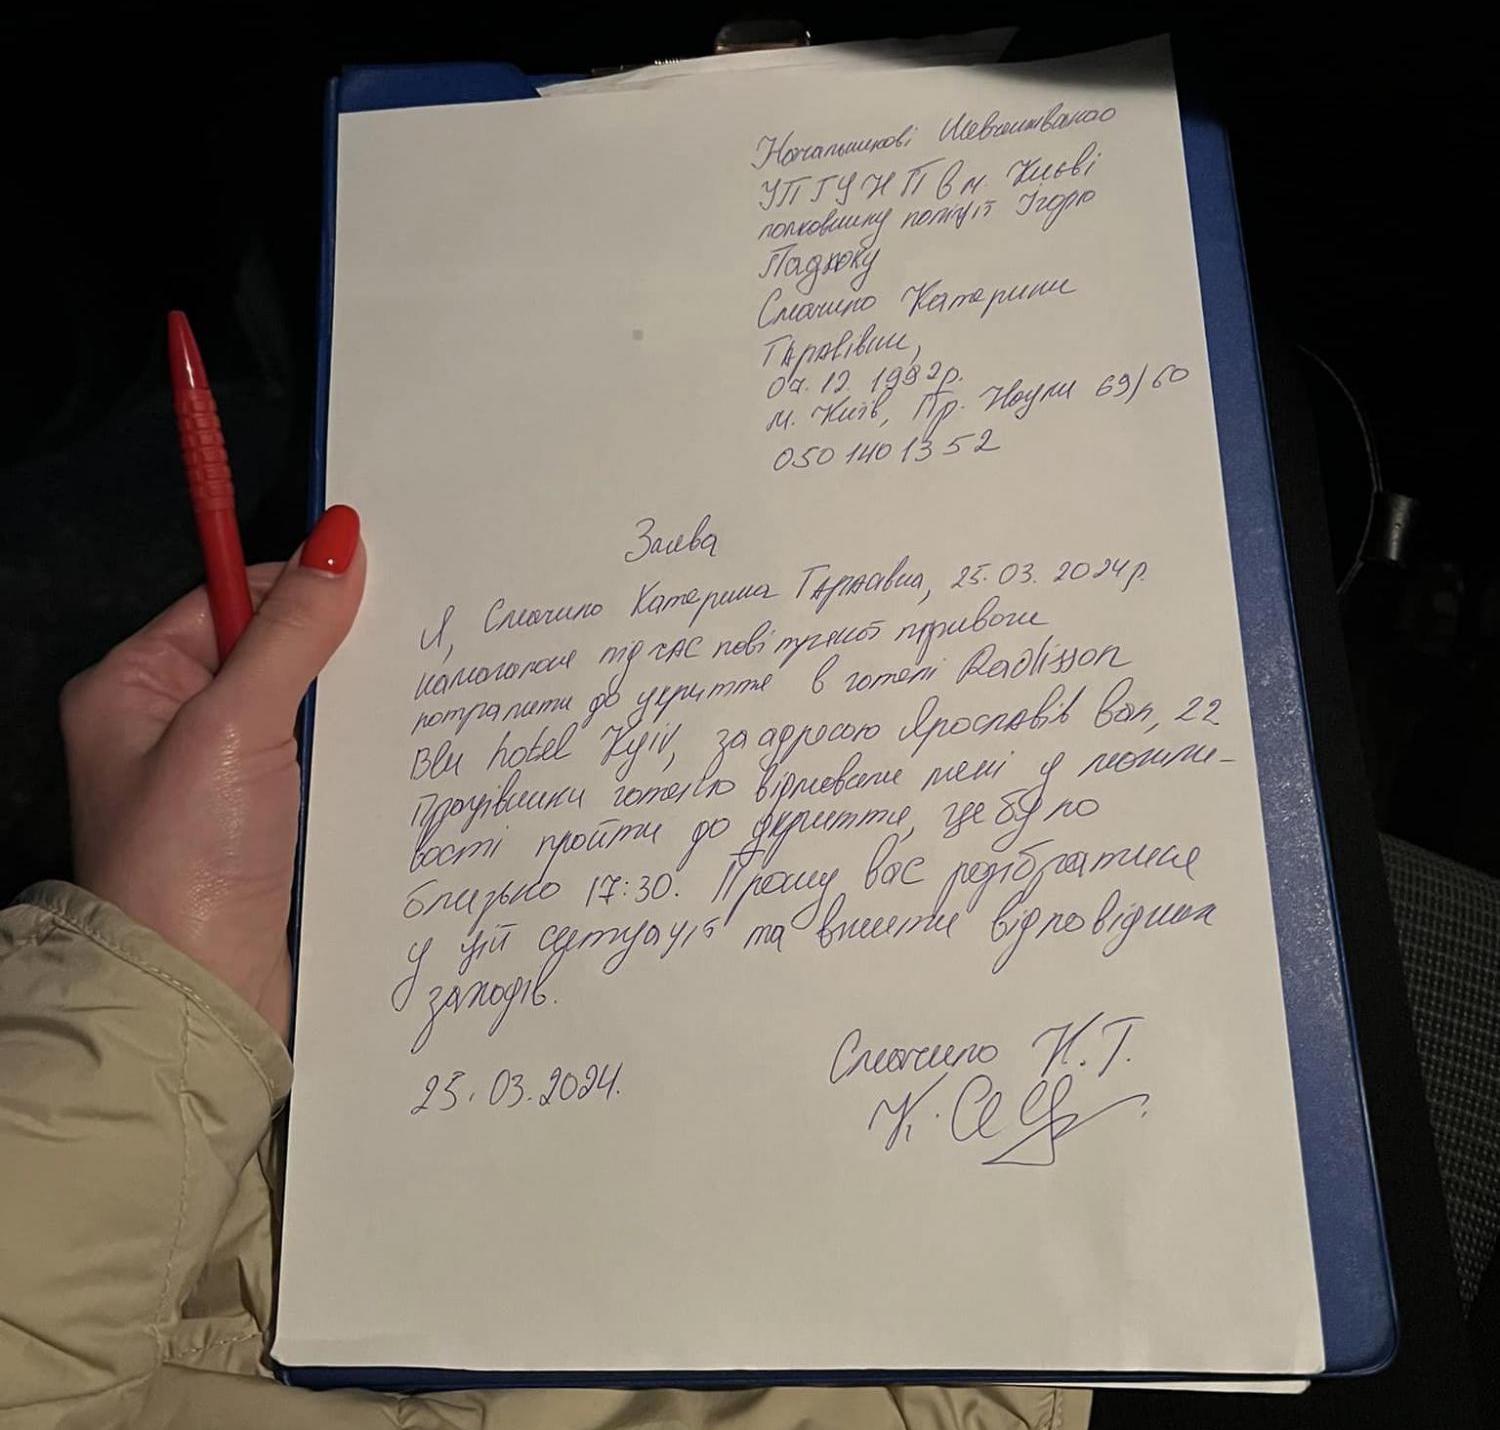 Начальникові Шевченківського
УП ГУНП в м. Києві
полковнику поліції Ігорю
Падюку
Смачило Катерини
Тарасівни,
07.12.1992р.
м. Київ, Пр. Науки 69/60
050 140 13 52
Заява
Я, Смачило Катерина Тарасівна, 25.03.2024р.
намагалася під час повітряної тривоги
потрапити до укриття в готелі Radisson
Blu hotel Kyiv, за адресою Ярославів Вал, 22
Працівники готелю відмовили мені у можли-
вості пройти до укриття, це було
близько 17:30. Прошу вас розібратися
у цій ситуації та вжити відповідних
заходів.
25.03.2024.
Смачило К.Т.